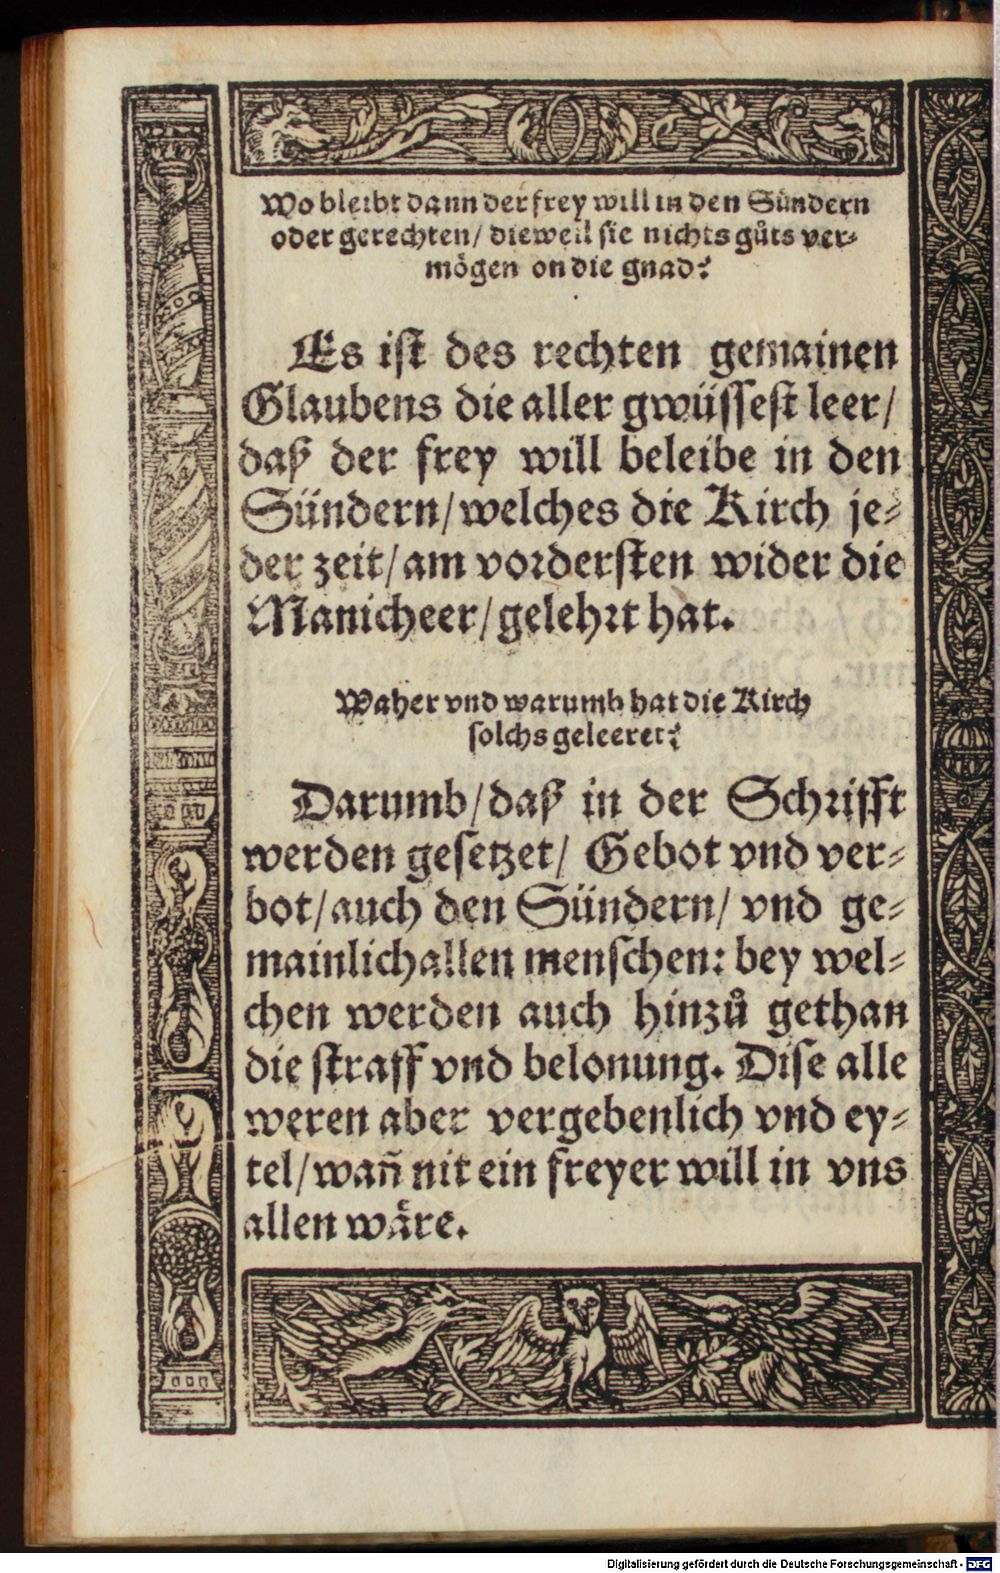 Wo bleibt dann der frey will in den Sündern
oder gerechten/ dieweil sie nichts gůts ver⸗
mögen on die gnad?
Es ist des rechten gemainen
Glaubens die aller gwüssest leer/
daß der frey will beleibe in den
Sündern/welches die Kirch je⸗
der zeit/am vordersten wider die
Manicheer/gelehrt hat.
Waher vnd warumb hat die Kirch
solchs geleeret?
Darumb/daß in der Schrifft
werden gesetzet/ Gebot vnd ver⸗
bot/auch den Sündern/ vnd ge⸗
mainlich allen menschen: bey wel⸗
chen werden auch hinzů gethan
die straff vnd belonung. Dise alle
weren aber vergebenlich vnd ey⸗
tel/wañ nit ein freyer will in vns
allen wäre.
Digitalisierung gefördert durch die Deutsche Forschungsgemeinschaft - DFG